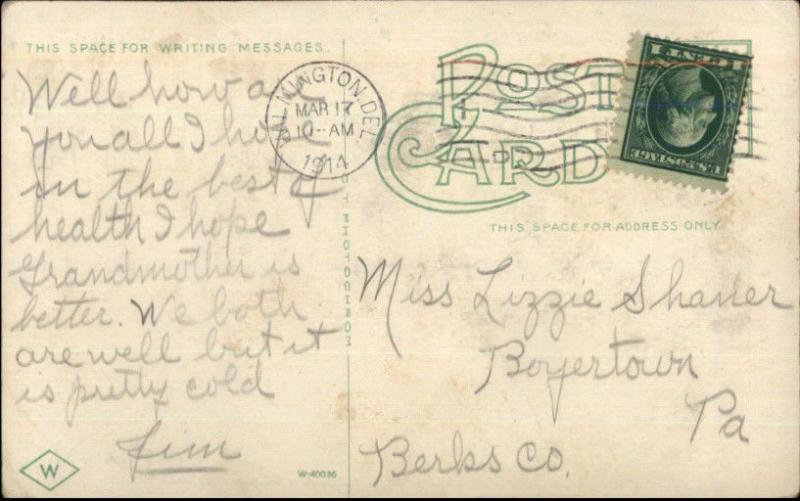 THIS SPACE FOR WRITING MESSAGES.
Well how are
you all I hope
in the best of
health I hope
Grandmother is
better. We both
are well but it
is pretty cold
Jim
W
W-40036
PHOTOCHROM
WILMINGTON, DEL
MAR 17
10-AM
1914
POST
CARD
U.S. POSTAGE
1 CENT 1
THIS SPACE FOR ADDRESS ONLY
Miss Lizzie Shaner
Boyertown
Pa
Berks Co.